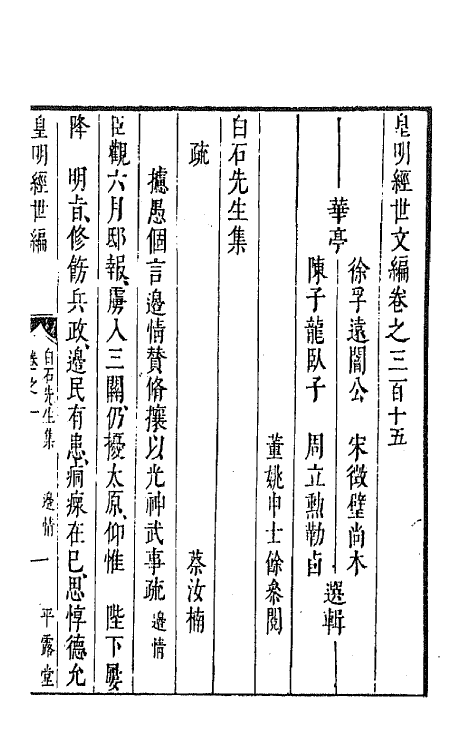 皇明經世文編卷之三百十五
華亭
徐孚遠闇公 宋徵璧尚木
陳子龍臥子 周立勳勒卣
選輯
董姚申士徐叅閱
白石先生集
蔡汝楠
疏
攄愚個言邊情贊脩攘以光神武事疏 邊情
臣觀六月邸報、虜入三關、仍擾太原、仰惟 陛下屢
降 明㫖、修飭兵政、邊民有患、痌瘝在已、思惇德允
皇明經世編
白石先生集
卷之一
邊情
一
平露堂